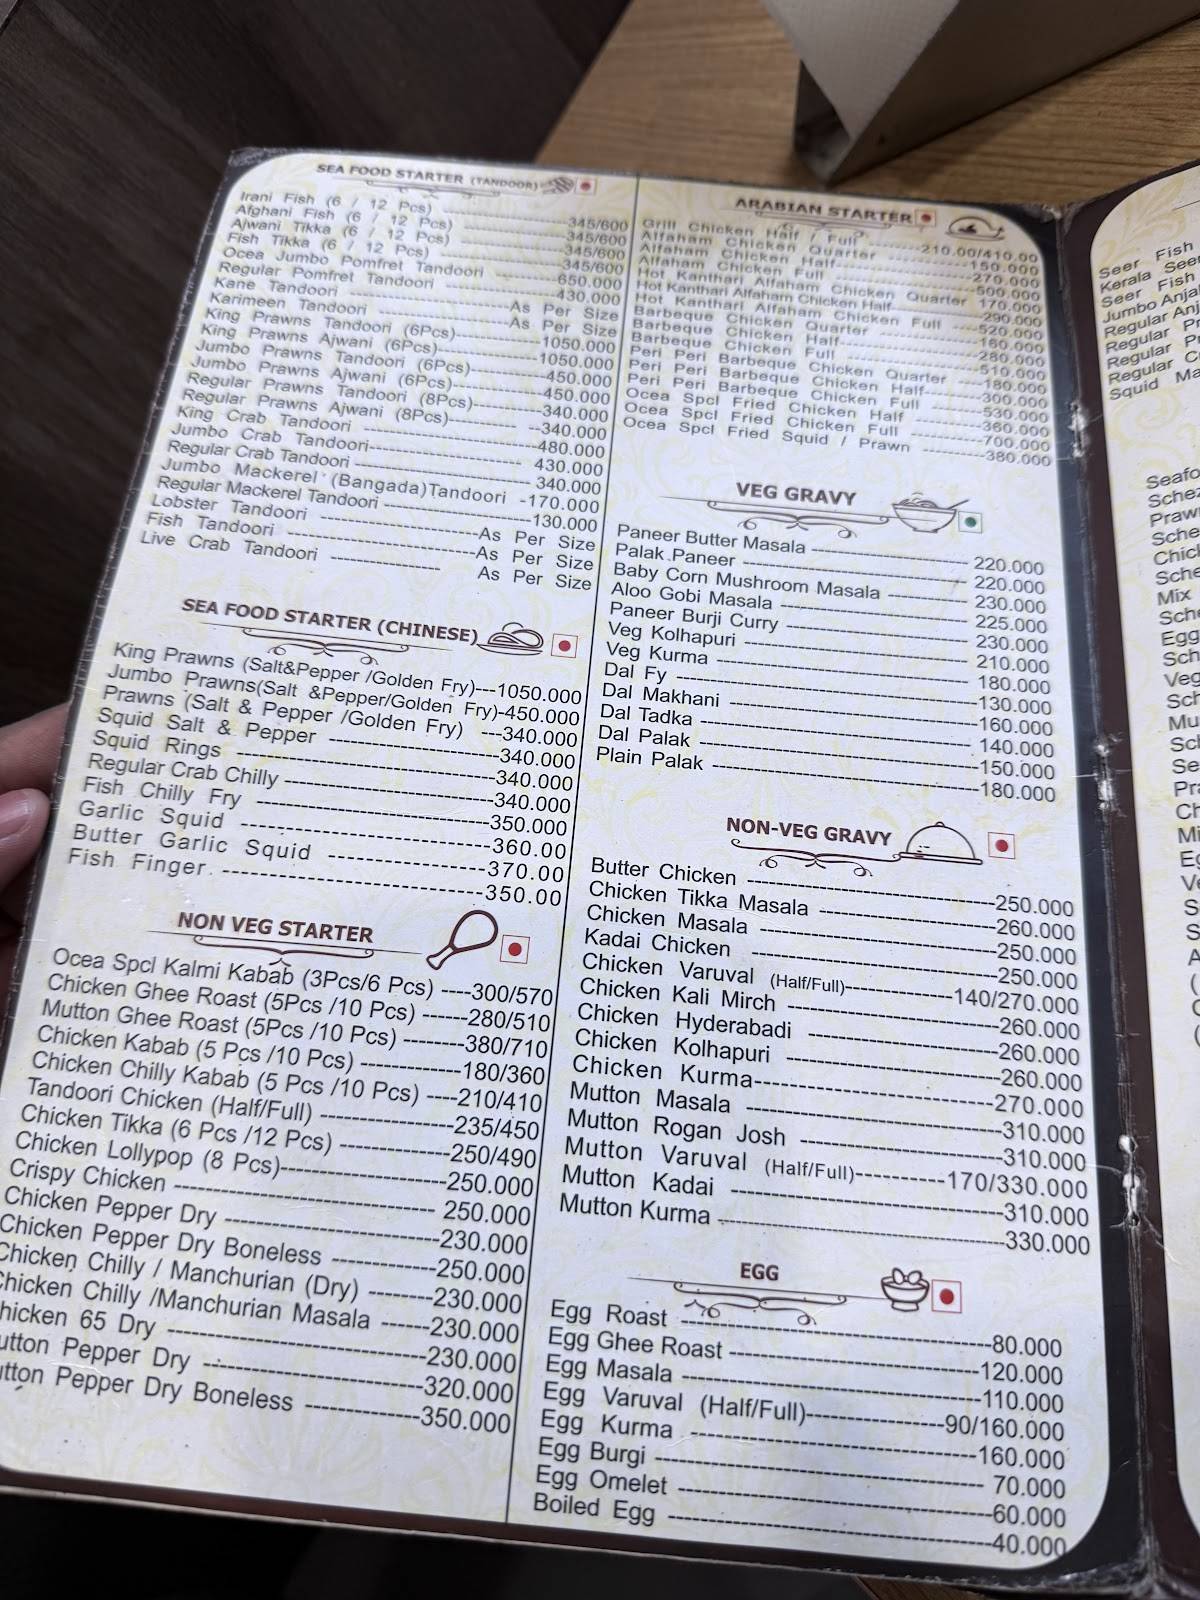 SEA FOOD STARTER (TANDOOR)
Irani Fish (6 / 12 Pcs) 345/600
Afghani Fish (6 / 12 Pcs) 345/600
Ajwani Tikka (6 / 12 Pcs) 345/600
Fish Tikka (6 / 12 Pcs) 345/600
Ocea Jumbo Pomfret Tandoori 650.000
Regular Pomfret Tandoori 430.000
Kane Tandoori As Per Size
Karimeen Tandoori As Per Size
King Prawns Tandoori (6Pcs) 1050.000
King Prawns Ajwani (6Pcs) 1050.000
Jumbo Prawns Tandoori (6Pcs) 450.000
Jumbo Prawns Ajwani (6Pcs) 450.000
Regular Prawns Tandoori (8Pcs) 340.000
Regular Prawns Ajwani (8Pcs) 340.000
King Crab Tandoori 480.000
Jumbo Crab Tandoori 430.000
Regular Crab Tandoori 340.000
Jumbo Mackerel (Bangada)Tandoori -170.000
Regular Mackerel Tandoori 130.000
Lobster Tandoori As Per Size
Fish Tandoori As Per Size
Live Crab Tandoori As Per Size
SEA FOOD STARTER (CHINESE)
King Prawns (Salt&Pepper /Golden Fry)---1050.000
Jumbo Prawns(Salt &Pepper/Golden Fry)-450.000
Prawns (Salt & Pepper /Golden Fry) ---340.000
Squid Salt & Pepper 340.000
Squid Rings 340.000
Regular Crab Chilly 340.000
Fish Chilly Fry 350.000
Garlic Squid 360.00
Butter Garlic Squid 370.00
Fish Finger 350.00
NON VEG STARTER
Ocea Spcl Kalmi Kabab (3Pcs/6 Pcs) ----300/570
Chicken Ghee Roast (5Pcs /10 Pcs) ------280/510
Mutton Ghee Roast (5Pcs /10 Pcs) --------380/710
Chicken Kabab (5 Pcs /10 Pcs) 180/360
Chicken Chilly Kabab (5 Pcs /10 Pcs) ----210/410
Tandoori Chicken (Half/Full) 235/450
Chicken Tikka (6 Pcs /12 Pcs) 250/490
Chicken Lollypop (8 Pcs) 250.000
Crispy Chicken 250.000
Chicken Pepper Dry 230.000
Chicken Pepper Dry Boneless 250.000
Chicken Chilly / Manchurian (Dry) 230.000
Chicken Chilly /Manchurian Masala 230.000
hicken 65 Dry 230.000
utton Pepper Dry 320.000
utton Pepper Dry Boneless 350.000
ARABIAN STARTER
Grill Chicken Half / Full 210.00/410.00
Alfaham Chicken Quarter 150.000
Alfaham Chicken Half 270.000
Alfaham Chicken Full 500.000
Hot Kanthari Alfaham Chicken Quarter 170.000
Hot Kanthari Alfaham Chicken Half 290.000
Hot Kanthari Alfaham Chicken Full 520.000
Barbeque Chicken Quarter 160.000
Barbeque Chicken Half 280.000
Barbeque Chicken Full 510.000
Peri Peri Barbeque Chicken Quarter 180.000
Peri Peri Barbeque Chicken Half 300.000
Peri Peri Barbeque Chicken Full 530.000
Ocea Spcl Fried Chicken Half 360.000
Ocea Spcl Fried Chicken Full 700.000
Ocea Spcl Fried Squid / Prawn 380.000
VEG GRAVY
Paneer Butter Masala 220.000
Palak Paneer 220.000
Baby Corn Mushroom Masala 230.000
Aloo Gobi Masala 225.000
Paneer Burji Curry 230.000
Veg Kolhapuri 210.000
Veg Kurma 180.000
Dal Fy 130.000
Dal Makhani 160.000
Dal Tadka 140.000
Dal Palak 150.000
Plain Palak 180.000
NON-VEG GRAVY
Butter Chicken 250.000
Chicken Tikka Masala 260.000
Chicken Masala 250.000
Kadai Chicken 250.000
Chicken Varuval (Half/Full) 140/270.000
Chicken Kali Mirch 260.000
Chicken Hyderabadi 260.000
Chicken Kolhapuri 260.000
Chicken Kurma 270.000
Mutton Masala 310.000
Mutton Rogan Josh 310.000
Mutton Varuval (Half/Full) 170/330.000
Mutton Kadai 310.000
Mutton Kurma 330.000
EGG
Egg Roast 80.000
Egg Ghee Roast 120.000
Egg Masala 110.000
Egg Varuval (Half/Full) 90/160.000
Egg Kurma 160.000
Egg Burgi 70.000
Egg Omelet 60.000
Boiled Egg 40.000
Seer Fish
Kerala Seer
Seer Fish
Jumbo Anjal
Regular Anj
Regular P
Regular Pr
Regular C
Squid Ma
Seafo
Schez
Prawn
Sche
Chick
Sche
Mix
Sche
Egg
Sch
Veg
Sch
Mu
Sch
Se
Pra
Ch
Mi
Eg
Ve
S
S
A